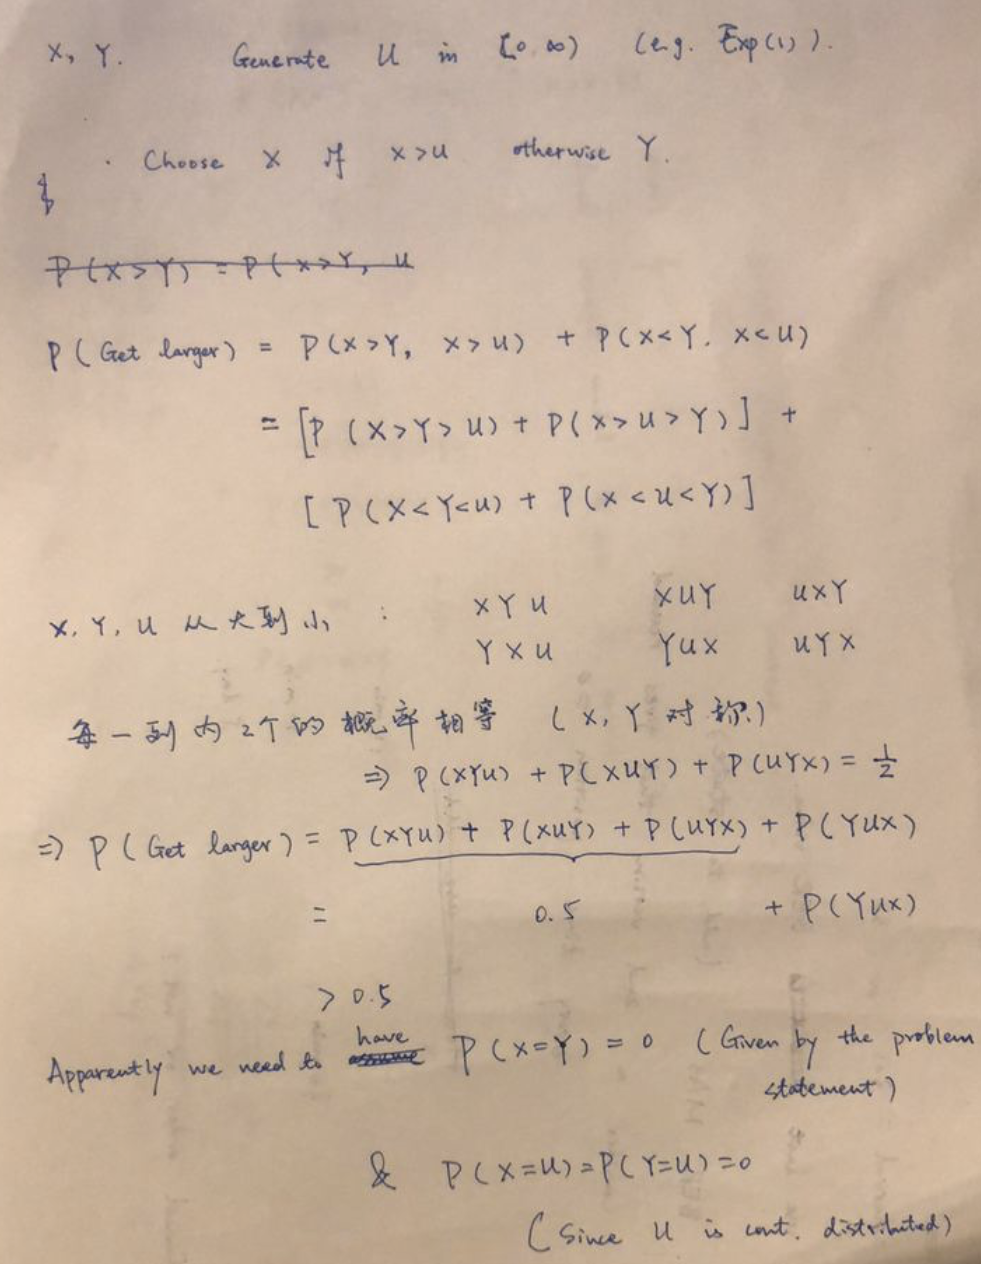 X, Y. Generate U in [0 ∞) (e.g. Exp(1)).
· Choose X if X>U otherwise Y.
P(X>Y) = P(X>Y, U
P(Get larger) = P(X>Y, X>U) + P(X<Y. X<U)
= [P (X>Y>U) + P(X>U>Y)] +
[P(X<Y<U) + P(X<U<Y)]
X, Y, U 从大到小 : XYU XUY UXY
YXU YUX UYX
每一列内2个的概率相等 (X, Y 对称)
⇒ P(XYU) + P(XUY) + P(UYX) = 1/2
⇒ P(Get larger) = P(XYU) + P(XUY) + P(UYX) + P(YUX)
= 0.5 + P(YUX)
> 0.5
have
Apparently we need to assume P(X=Y) = 0 (Given by the problem
statement)
& P(X=U)=P(Y=U)=0
(Since U is cont. distributed)